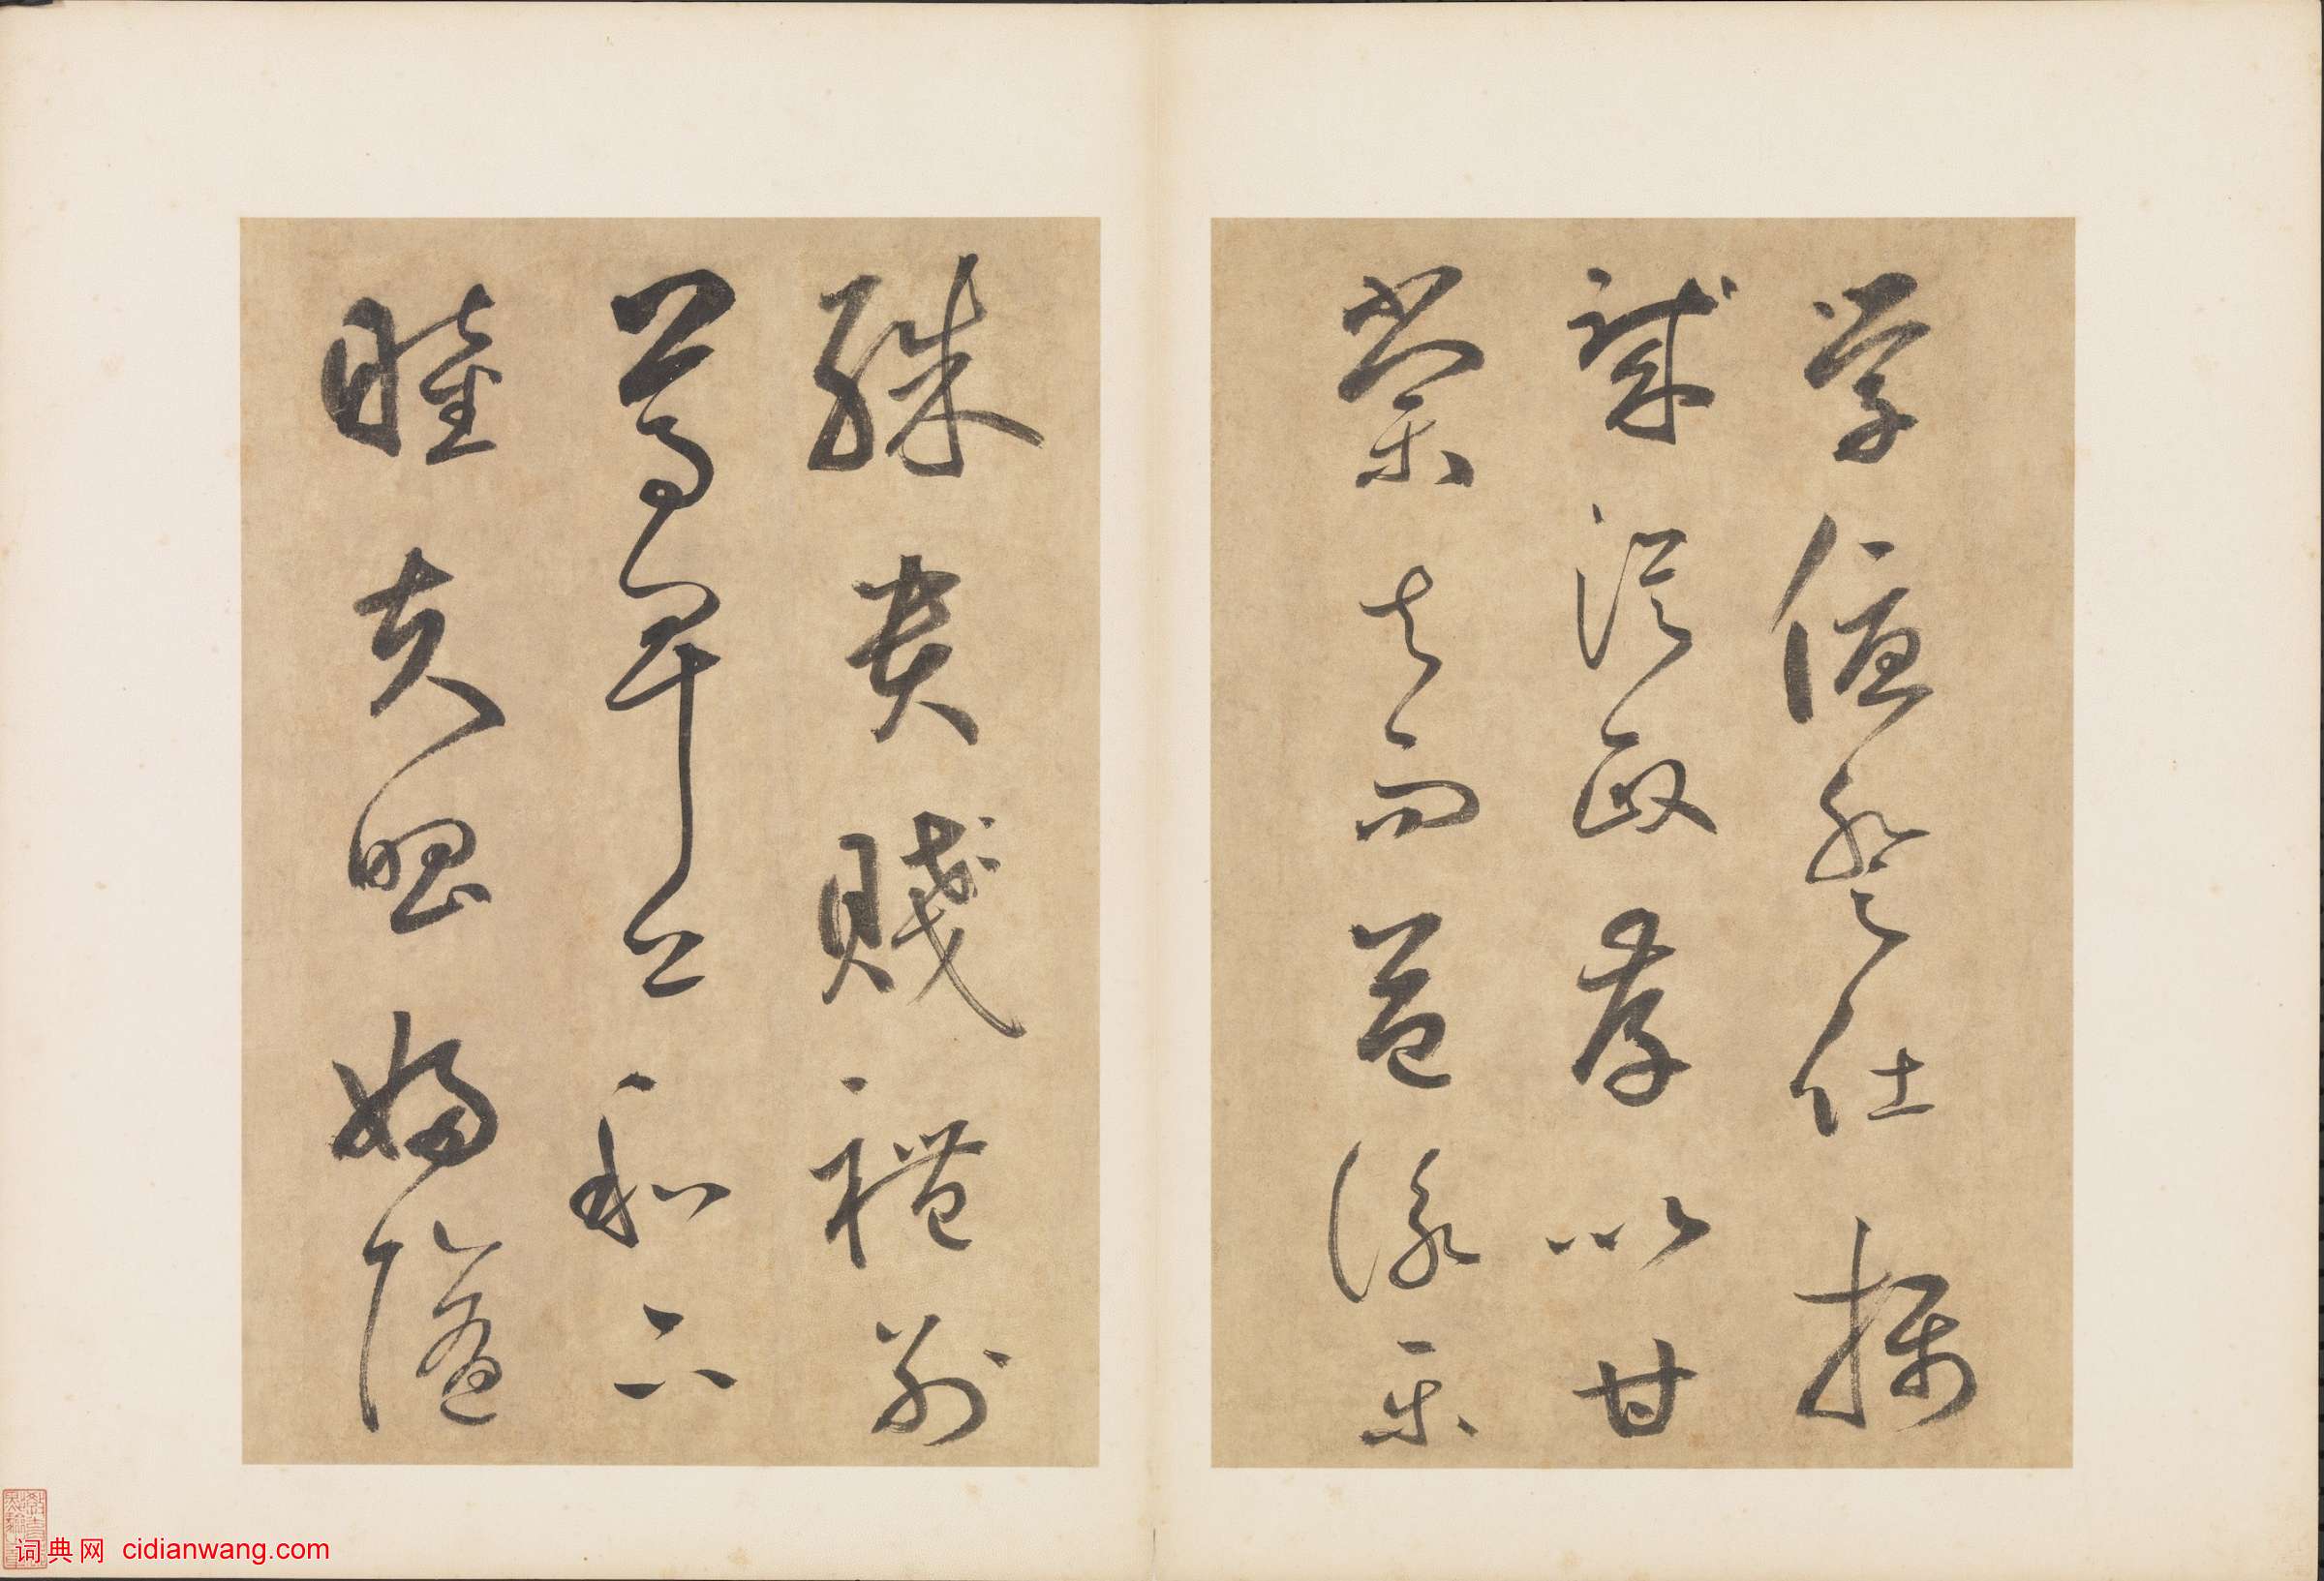 學優登仕攝
職從政存以甘
棠去而益詠樂
殊貴賤禮別
尊卑上和下
睦夫唱婦隨
词典网 cidianwang.com